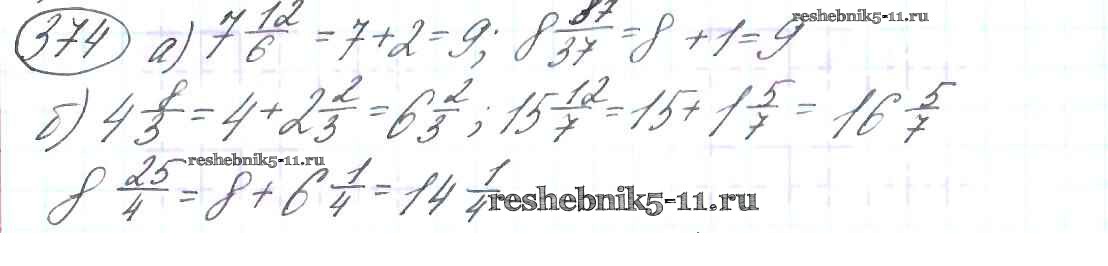 374 а) 7 12/6 = 7 + 2 = 9; 8 37/37 = 8 + 1 = 9 reshebnik5-11.ru
б) 4 8/3 = 4 + 2 2/3 = 6 2/3; 15 12/7 = 15 + 1 5/7 = 16 5/7
reshebnik5-11.ru
8 25/4 = 8 + 6 1/4 = 14 1/4 reshebnik5-11.ru